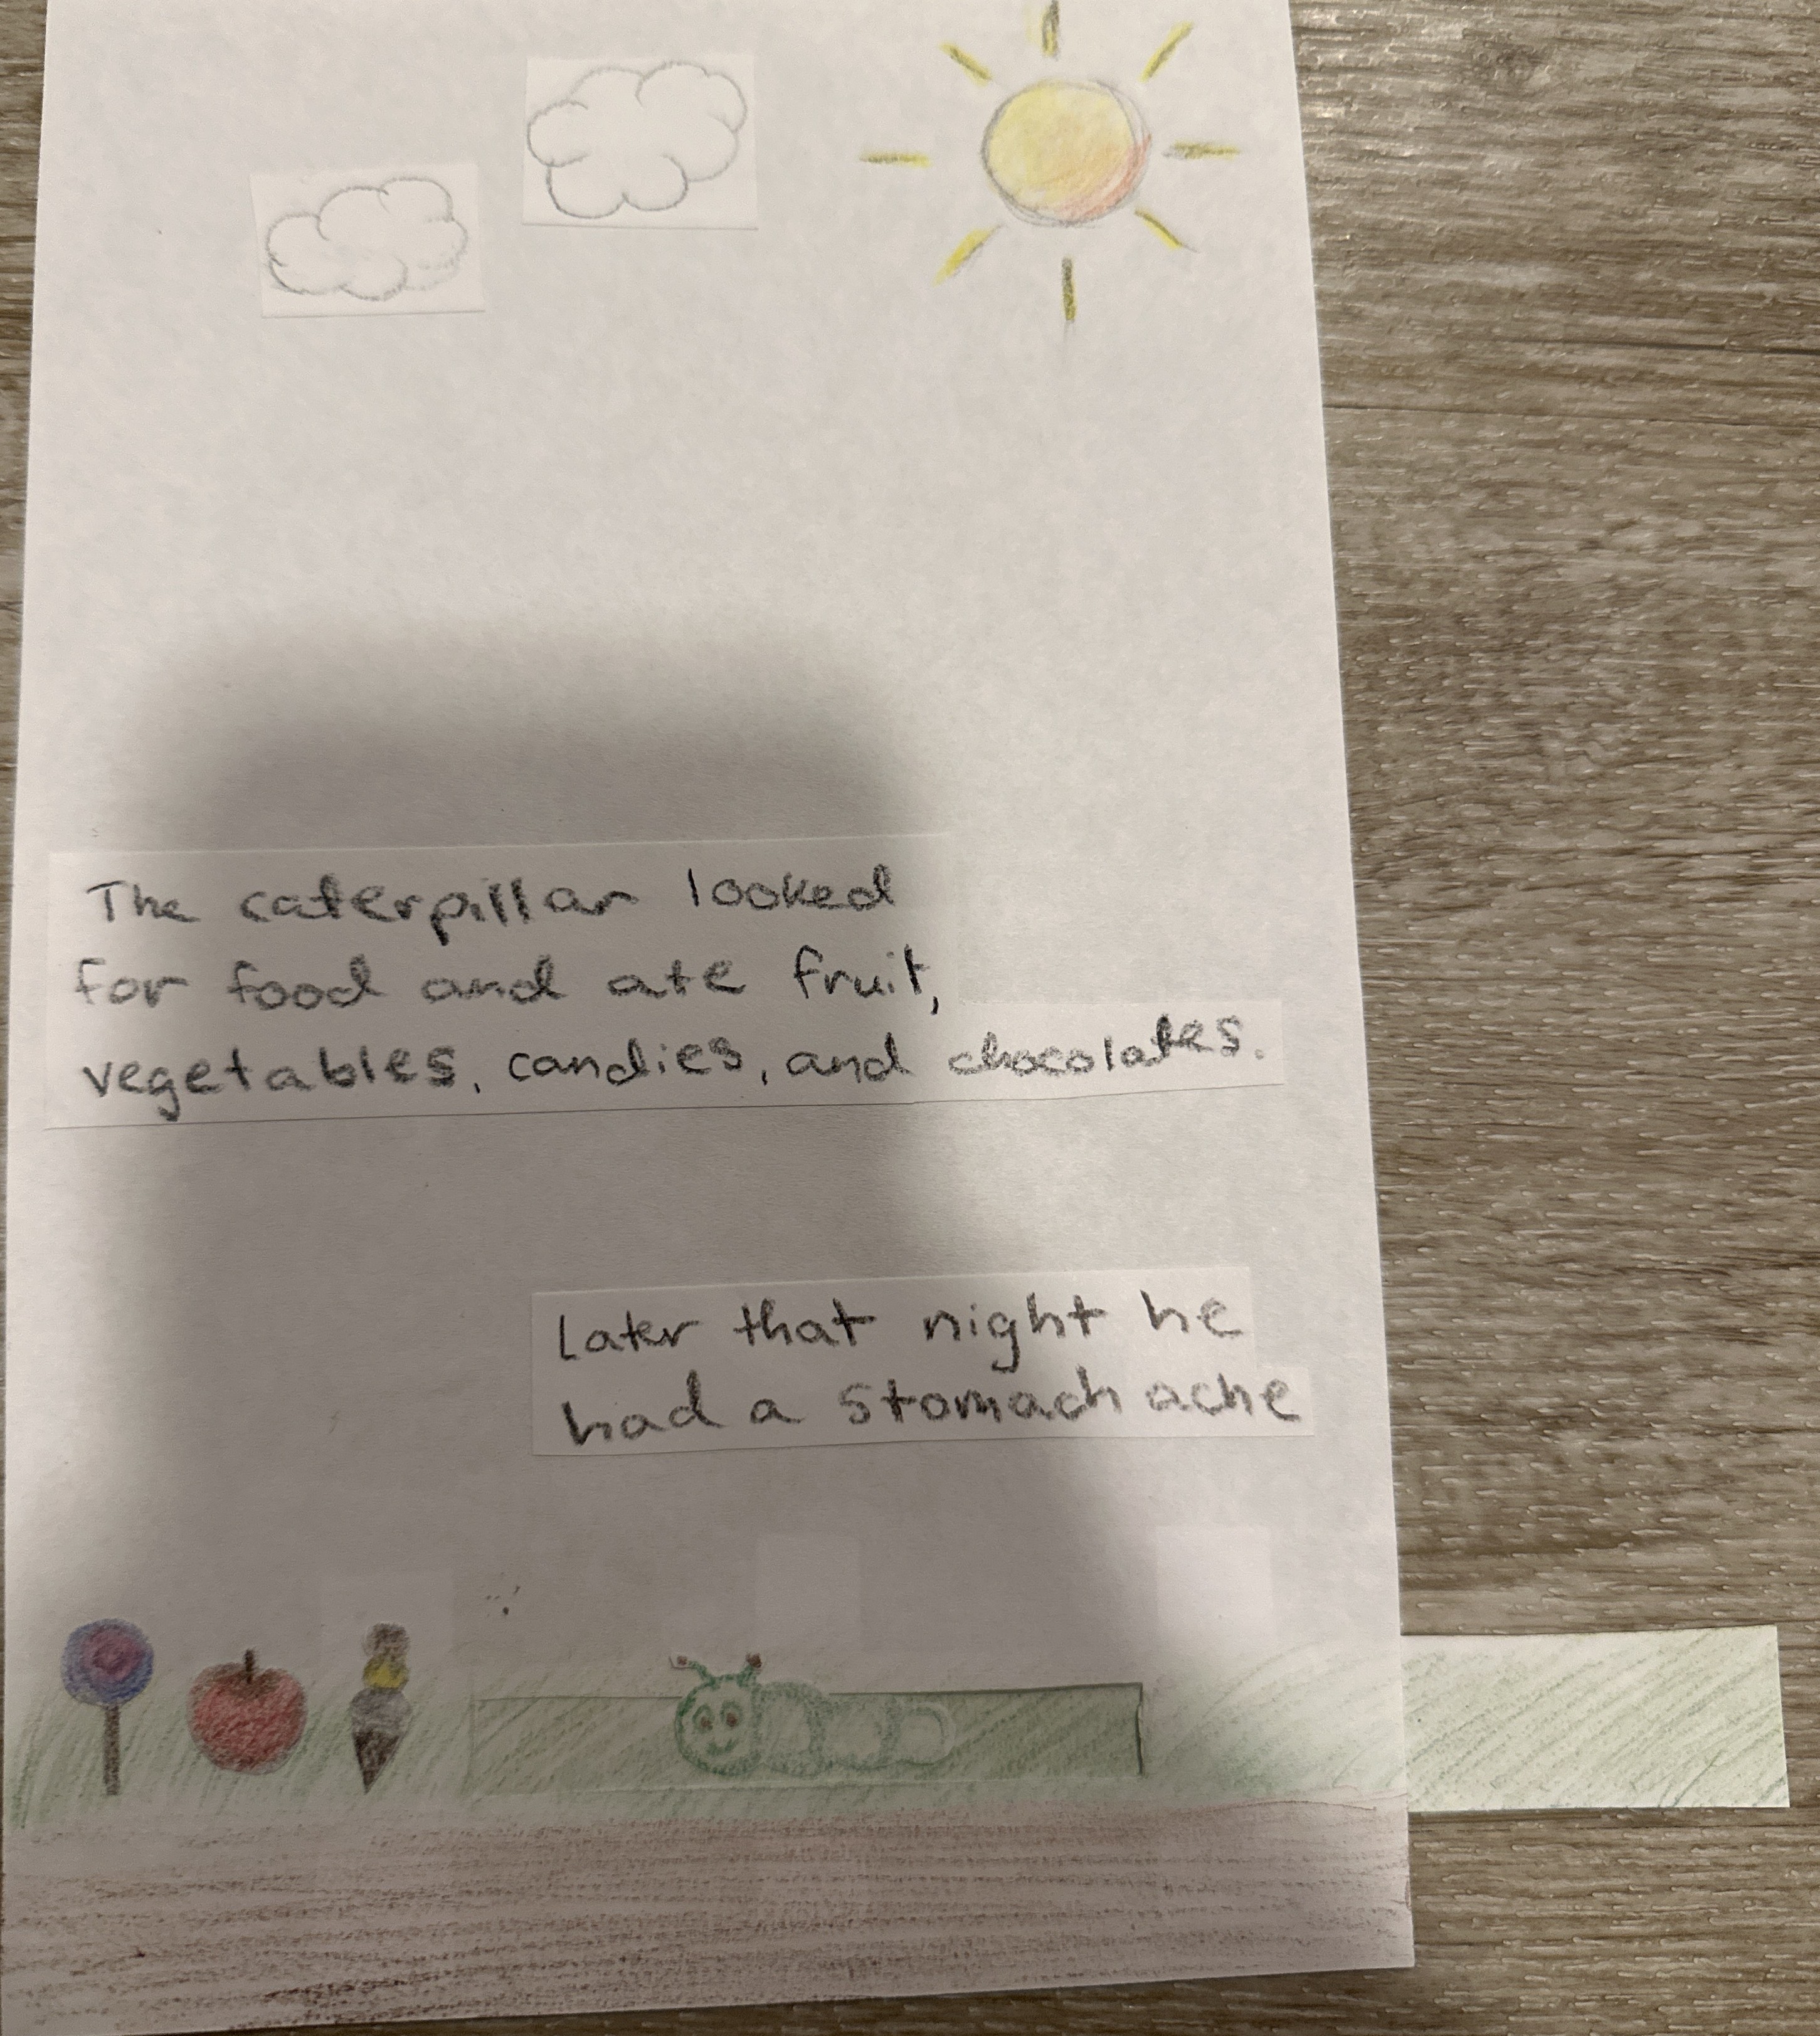 The caterpillar looked
for food and ate fruit,
vegetables, candies, and chocolates.
Later that night he
had a stomach ache